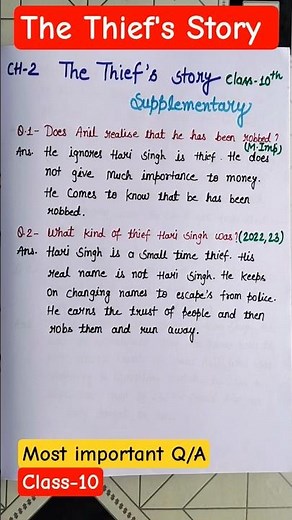 The Thief's Story
CH-2 The Thief's story class-10th
Supplementary
Q.1- Does Anil realise that he has been robbed?
(M.Imp)
Ans. He ignores Hari Singh is thief. He does
not give much importance to money.
He Comes to know that be has been
robbed.
Q.2- What kind of thief Hari Singh was? (2022,23)
Ans. Hari Singh is a small time thief. His
real name is not Hari Singh. He keeps
on changing names to escape's from police.
He earns the trust of people and then
robs them and run away.
Most important Q/A
Class-10